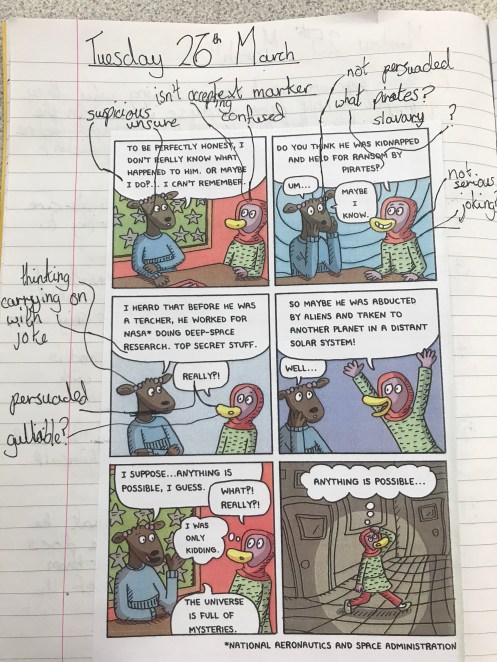 Tuesday 26th March
not persuaded
isn't accepting
Text marker
what pirates?
suspicious
unsure
confused
slavary
?
TO BE PERFECTLY HONEST, I
DON'T REALLY KNOW WHAT
HAPPENED TO HIM. OR MAYBE
I DO?... I CAN'T REMEMBER.
DO YOU THINK HE WAS KIDNAPPED
AND HELD FOR RANSOM BY
PIRATES?
UM...
MAYBE
I
KNOW.
not
serious
joking?
thinking
carrying on
with
joke
I HEARD THAT BEFORE HE WAS
A TEACHER, HE WORKED FOR
NASA* DOING DEEP-SPACE
RESEARCH. TOP SECRET STUFF.
REALLY?!
SO MAYBE HE WAS ABDUCTED
BY ALIENS AND TAKEN TO
ANOTHER PLANET IN A DISTANT
SOLAR SYSTEM!
WELL...
persuaded
gullable?
I SUPPOSE...ANYTHING IS
POSSIBLE, I GUESS.
WHAT?!
REALLY?!
I WAS
ONLY
KIDDING.
THE UNIVERSE
IS FULL OF
MYSTERIES.
ANYTHING IS POSSIBLE...
*NATIONAL AERONAUTICS AND SPACE ADMINISTRATION